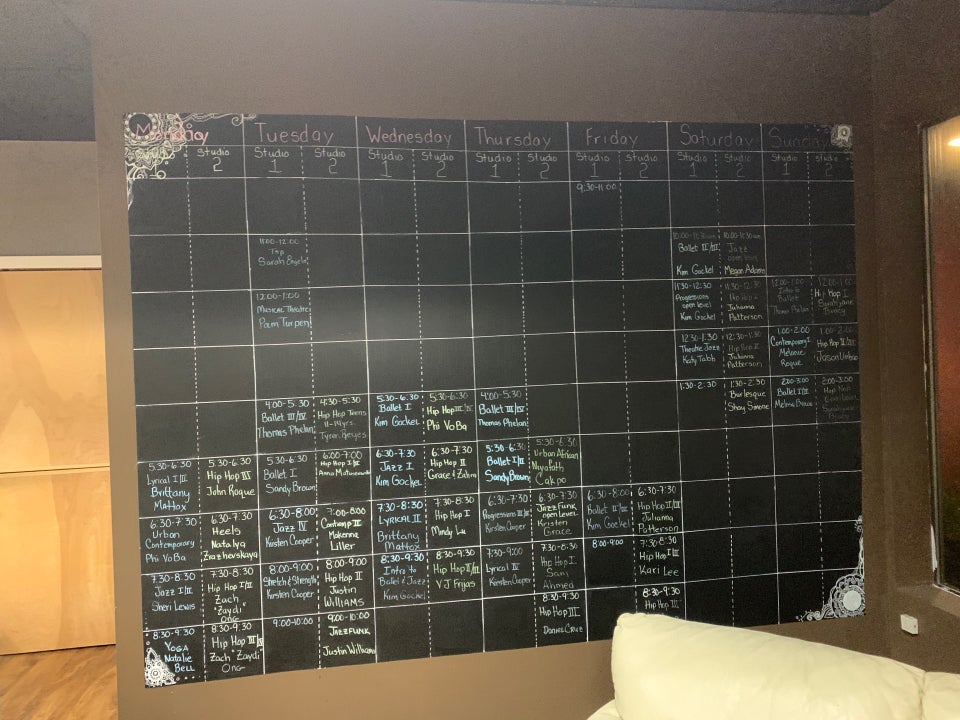 Monday Tuesday Wednesday Thursday Friday Saturday Sunday
Studio Studio Studio Studio Studio Studio Studio Studio Studio Studio Studio Studio Studio
2 1 2 1 2 1 2 1 2 1 2 1 2
9:30-11:00
11:00-12:00
Tap
Sarah
10:00-11:30am
Ballet II/III
Kim Gockel
10:00-11:30am
Jazz
open level
Megan Adams
12:00-1:00
Musical Theatre
Pam Turpen
11:30-12:30
Progressions
open level
Kim Gockel
11:30-12:30
Hip Hop I
Julianna
Patterson
12:00-1:00
Intro to
Ballet
Thomas Phelan
12:00-1:00
Hip Hop I
12:30-1:30
Theatre Jazz
Katy Tabb
12:30-1:30
Hip Hop II
Julianna
Patterson
1:00-2:00
Contemporary I
Melanie
Rogue
1:00-2:00
Hip Hop II/III
Jason
4:00-5:30
Ballet III/IV
Thomas Phelan
4:30-5:30
Hip Hop Teens
11-14yrs
Tyson Keyes
5:30-6:30
Ballet I
Kim Gockel
5:30-6:30
Hip Hop III/IV
Phi Vo Ba
4:00-5:30
Ballet III/IV
Thomas Phelan
1:30-2:30
1:30-2:30
Burlesque
Shay Simone
2:00-3:00
Ballet I/II
2:00-3:00
5:30-6:30
Lyrical I/II
Brittany
Mattox
5:30-6:30
Hip Hop III
John Rogue
5:30-6:30
Ballet I
Sandy Brown
6:00-7:00
Hip Hop I/II
Anna Matuszewski
6:30-7:30
Jazz I
Kim Gockel
6:30-7:30
Hip Hop II
Grace & Zahra
5:30-6:30
Ballet I/II
Sandy Brown
5:30-6:30
Urban African
Cakpo
6:30-7:30
Urban
Contemporary
Phi Vo Ba
6:30-7:30
Heels
Natalya
Zrazhavskaya
6:30-8:00
Jazz IV
Kirsten Cooper
7:00-8:00
Contemp II
Makenna
Liller
7:30-8:30
Lyrical II
Brittany
Mattox
7:30-8:30
Hip Hop I
Mindy Lu
6:30-7:30
Progressions III
Kirsten Cooper
6:30-7:30
Jazz Funk
open Level
Kirsten
Grace
6:30-8:00
Ballet II/III
Kim Gockel
6:30-7:30
Hip Hop II/III
Julianna
Patterson
7:30-8:30
Jazz I/II
Sheri Lewis
7:30-8:30
Hip Hop I/II
Zach
"Zaydi"
Ong
8:00-9:00
Stretch & Strength
Kirsten Cooper
8:00-9:00
Hip Hop II
Justin
Williams
8:30-9:30
Intro to
Ballet & Jazz
Kim Gockel
8:30-9:30
Hip Hop II/III
VJ Frijas
7:30-9:00
Lyrical IV
Kirsten Cooper
7:30-8:30
Hip Hop I
Sam
Ahmed
8:00-9:00
7:30-8:30
Hip Hop I/II
Kari Lee
8:30-9:30
Yoga
Natalie
Bell
8:30-9:30
Hip Hop III/IV
Zach "Zaydi"
Ong
9:00-10:00
9:00-10:00
Jazzfunk
Justin Williams
8:30-9:30
Hip Hop III
Daniel Cruz
8:30-9:30
Hip Hop III